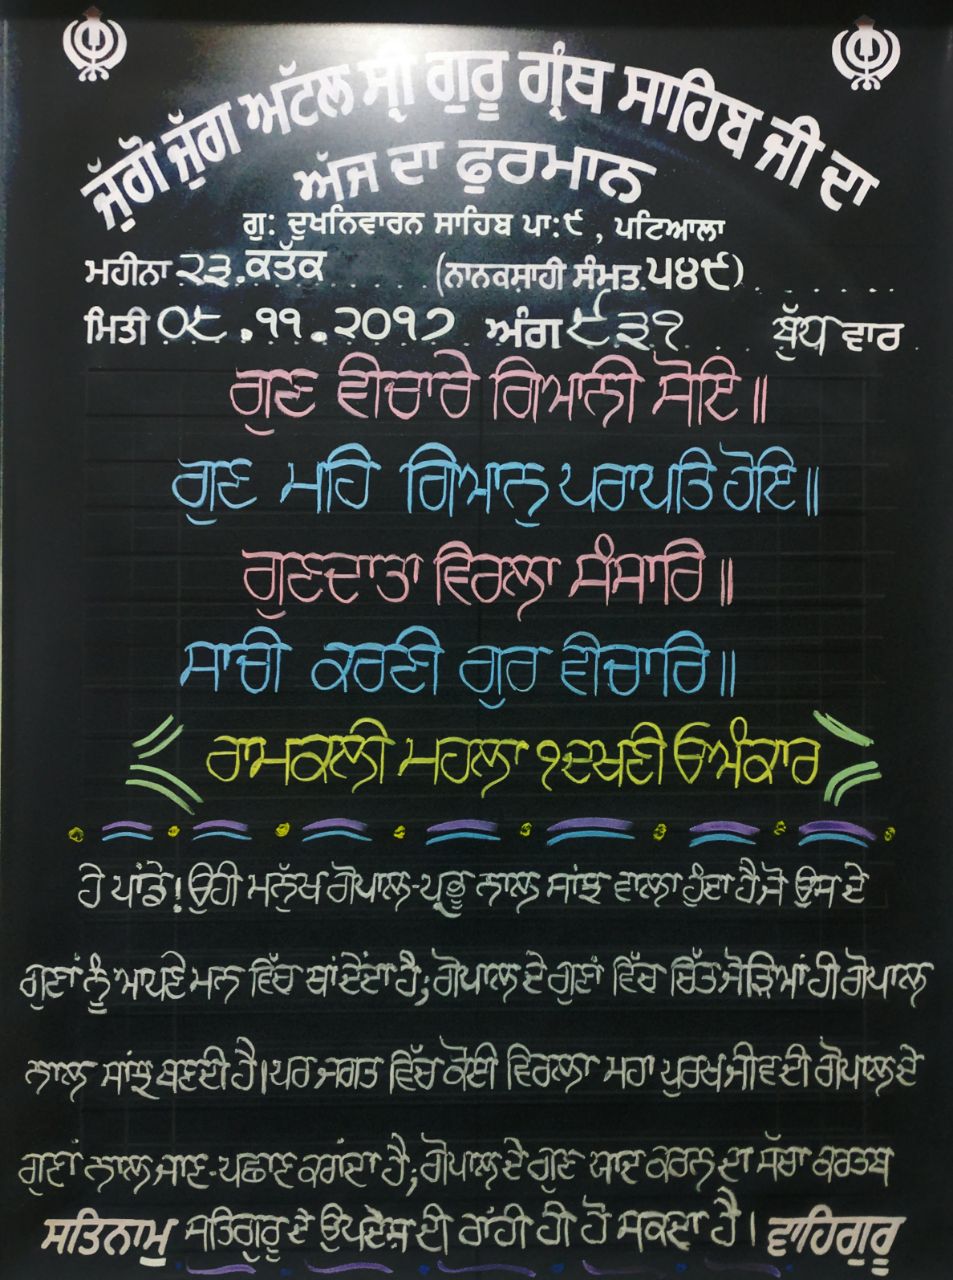 ਜੁੱਗੋ ਜੁੱਗ ਅਟੱਲ ਸ੍ਰੀ ਗੁਰੂ ਗ੍ਰੰਥ ਸਾਹਿਬ ਜੀ ਦਾ
ਅੱਜ ਦਾ ਫੁਰਮਾਨ
ਗੁ: ਦੁਖਨਿਵਾਰਨ ਸਾਹਿਬ ਪਾ:੯ , ਪਟਿਆਲਾ
ਮਹੀਨਾ ੨੩.ਕਤੱਕ (ਨਾਨਕਸਾਹੀ ਸੰਮਤ.੫੪੯)
ਮਿਤੀ ੦੮.੧੧.੨੦੧੭ ਅੰਗ ੯੩੧ ਬੁੱਧ ਵਾਰ
ਗੁਣ ਵੀਚਾਰੇ ਗਿਆਨੀ ਸੋਇ॥
ਗੁਣ ਮਹਿ ਗਿਆਨੁ ਪਰਾਪਤਿ ਹੋਇ॥
ਗੁਣਦਾਤਾ ਵਿਰਲਾ ਸੰਸਾਰਿ॥
ਸਾਚੀ ਕਰਣੀ ਗੁਰ ਵੀਚਾਰਿ॥
ਰਾਮਕਲੀ ਮਹਲਾ ੧ ਦਖਣੀ ਓਅੰਕਾਰ
ਹੇ ਪਾਂਡੇ! ਉਹੀ ਮਨੁੱਖ ਗੋਪਾਲ-ਪ੍ਰਭੂ ਨਾਲ ਸਾਂਝ ਵਾਲਾ ਹੁੰਦਾ ਹੈ,ਜੋ ਉਸ ਦੇ
ਗੁਣਾਂ ਨੂੰ ਆਪਣੇ ਮਨ ਵਿੱਚ ਥਾਂ ਦੇਂਦਾ ਹੈ;ਗੋਪਾਲ ਦੇ ਗੁਣਾਂ ਵਿੱਚ ਚਿੱਤ ਜੋੜਿਆਂ ਹੀ ਗੋਪਾਲ
ਨਾਲ ਸਾਂਝ ਬਣਦੀ ਹੈ।ਪਰ ਜਗਤ ਵਿੱਚ ਕੋਈ ਵਿਰਲਾ ਮਹਾ ਪੁਰਖ ਜੀਵ ਦੀ ਗੋਪਾਲ ਦੇ
ਗੁਣਾਂ ਨਾਲ ਜਾਣ-ਪਛਾਣ ਕਰਾਂਦਾ ਹੈ;ਗੋਪਾਲ ਦੇ ਗੁਣ ਯਾਦ ਕਰਨ ਦਾ ਸੱਚਾ ਕਰਤਬ
ਸਤਿਨਾਮੁ ਸਤਿਗੁਰੂ ਦੇ ਉਪਦੇਸ਼ ਦੀ ਰਾਂਹੀ ਹੀ ਹੋ ਸਕਦਾ ਹੈ। ਵਾਹਿਗੁਰੂ